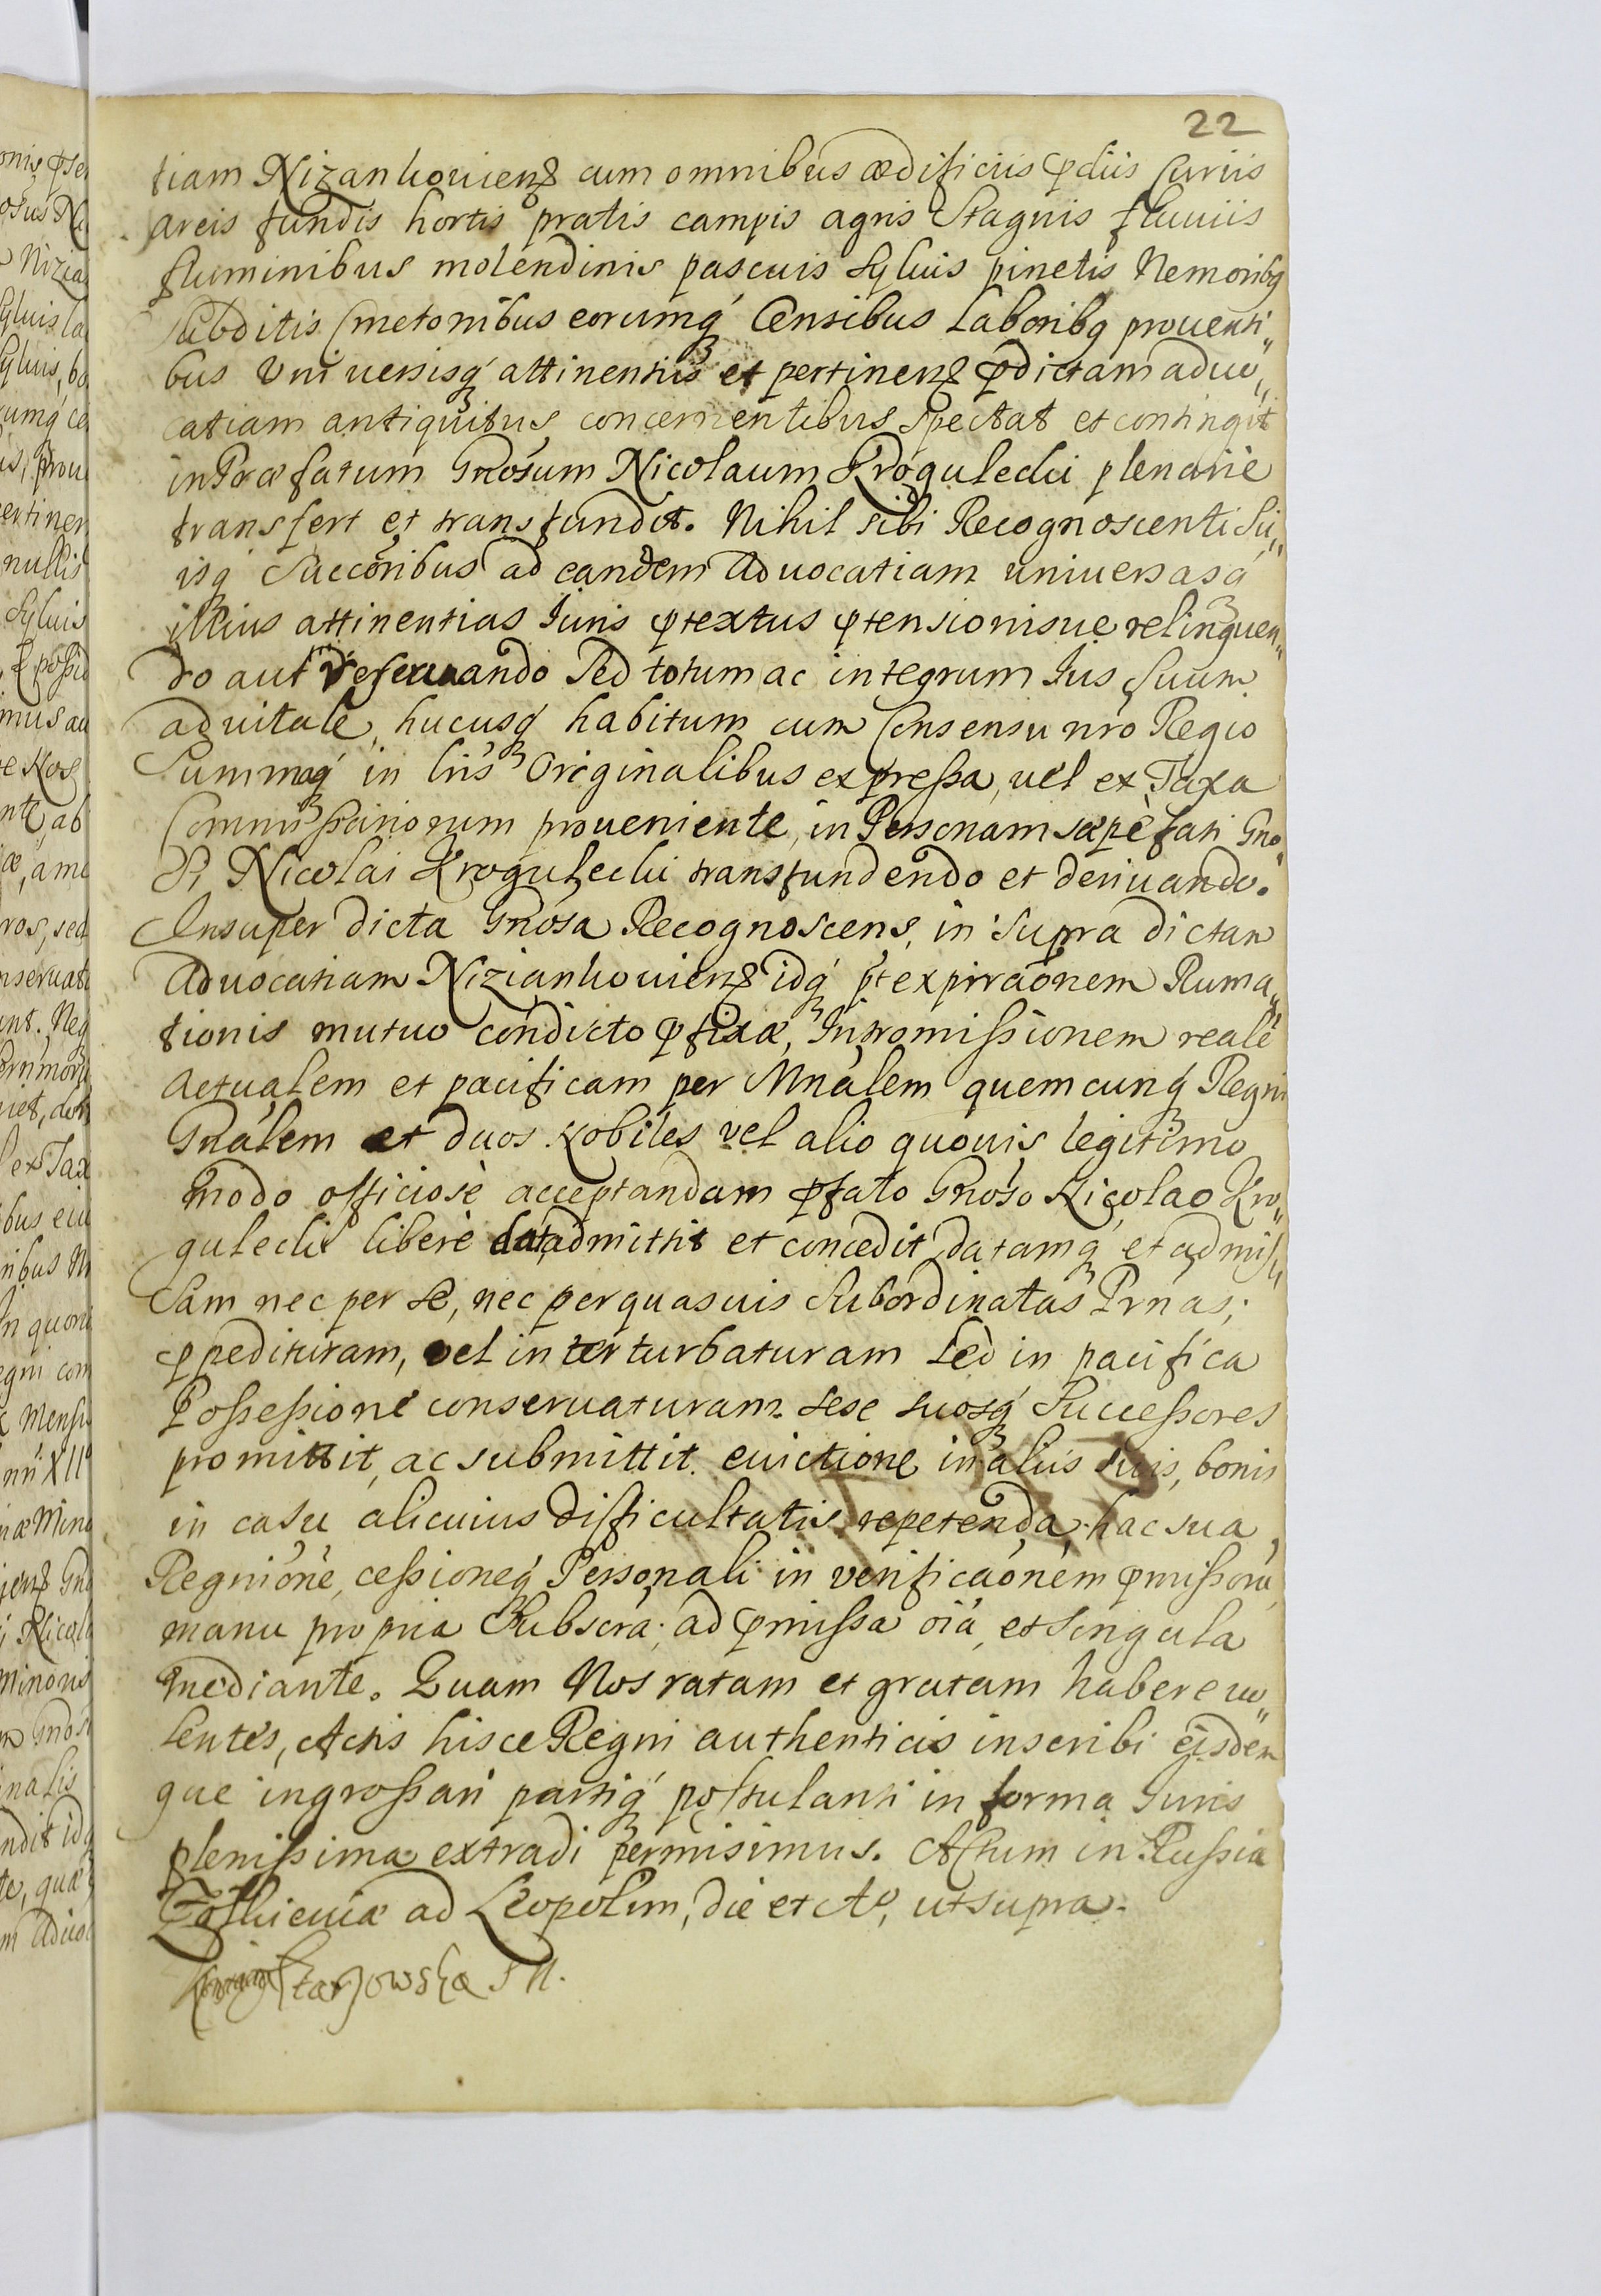 22
tiam Nizankouiens cum omnibus ædificiis pdiis Curiis
areis fundis hortis pratis campis agris Stagnis fluuiis
fluminibus molendinis pascuis Syluis pinetis Nemoribq
Subditis Cmetonibus eorumq́ Censibus Laboribq prouenti„
bus Vniuersisq́ attinentiis et pertinens pdictam aduo„
catiam antiquitus concernentibus spectat et contingit
in Præfatum Gnosum Nicolaum Krogulecki plenarie
transfert et transfundit. Nihil sibi Recognoscenti Su„
isq Succoribus ad eandem Aduocatiam uniuersasq́
illius attinentias Iuris ptextus ptensionisue relinquen„
do aut reseruando Sed totum ac integrum Ius Suum
aduitale, hucusq́ habitum cum Consensu nro Regio
Summaq́ in lris Originalibus expreßa, uel ex Taxa
Commißariorum proueniente, in Personam sæpè fati Gno„
Si Nicolai Krogulecki transfundendo et deriuando.
Insuper dicta Gnosa Recognoscens, in supra dictam
Aduocatiam Niziankouiens idq́ pt expiraonem Ruma„
tionis mutuo condicto pfixæ, Intromißionem realẽ
Actualem et pacificam per Mnalem quemcunq́ Regni
Gnalem et duos Nobiles vel alio quouis legitimo
modo officiosè acceptandam pfato Gnoso Nicolao Kro„
gulecki liberè dat admittit et concedit, datamq́ et admis„
Sam nec per se, nec per quasuis Subordinatas Prnas;
ppedituram, vel interturbaturam Sed in pacifica
Poßeßione conseruaturam sese suosq́ Succeßores
promittit, ac submittit. euictione in aliis suis, bonis
in casu alicuius difficultatis repetenda, hac sua
Regnione, ceßioneq́ Personali in verificaonem pmißorũ
manu propria Subscra. ad pmißa oia, et singula
mediante. Quam Nos ratam et gratam habere uo„
lentes, Actis hisce Regni authenticis inscribi eisdem
que ingroßari partiq́ postulanti in forma Iuris
plenißima extradi permisimus. Actum in Rußia
Zolkieuiæ ad Leopolim, die et Ao, ut supra.